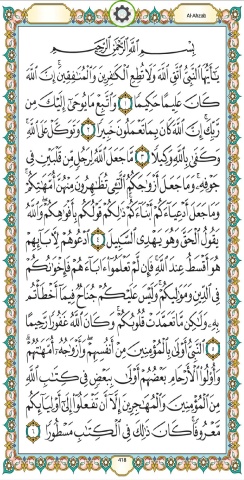 Al-Ahzab
بِسْمِ اللَّهِ الرَّحْمَٰنِ الرَّحِيمِ
يَا أَيُّهَا النَّبِيُّ اتَّقِ اللَّهَ وَلَا تُطِعِ الْكَافِرِينَ وَالْمُنَافِقِينَ ۗ إِنَّ اللَّهَ
كَانَ عَلِيمًا حَكِيمًا ١ وَاتَّبِعْ مَا يُوحَىٰ إِلَيْكَ مِن
رَّبِّكَ ۚ إِنَّ اللَّهَ كَانَ بِمَا تَعْمَلُونَ خَبِيرًا ٢ وَتَوَكَّلْ عَلَى اللَّهِ ۚ
وَكَفَىٰ بِاللَّهِ وَكِيلًا ٣ مَّا جَعَلَ اللَّهُ لِرَجُلٍ مِّن قَلْبَيْنِ فِي
جَوْفِهِ ۚ وَمَا جَعَلَ أَزْوَاجَكُمُ اللَّائِي تُظَاهِرُونَ مِنْهُنَّ أُمَّهَاتِكُمْ ۚ
وَمَا جَعَلَ أَدْعِيَاءَكُمْ أَبْنَاءَكُمْ ۚ ذَٰلِكُمْ قَوْلُكُم بِأَفْوَاهِكُمْ ۖ وَاللَّهُ
يَقُولُ الْحَقَّ وَهُوَ يَهْدِي السَّبِيلَ ٤ ادْعُوهُمْ لِآبَائِهِمْ
هُوَ أَقْسَطُ عِندَ اللَّهِ ۚ فَإِن لَّمْ تَعْلَمُوا آبَاءَهُمْ فَإِخْوَانُكُمْ
فِي الدِّينِ وَمَوَالِيكُمْ ۚ وَلَيْسَ عَلَيْكُمْ جُنَاحٌ فِيمَا أَخْطَأْتُم
بِهِ وَلَٰكِن مَّا تَعَمَّدَتْ قُلُوبُكُمْ ۚ وَكَانَ اللَّهُ غَفُورًا رَّحِيمًا
٥ النَّبِيُّ أَوْلَىٰ بِالْمُؤْمِنِينَ مِنْ أَنفُسِهِمْ ۖ وَأَزْوَاجُهُ أُمَّهَاتُهُمْ ۗ
وَأُولُو الْأَرْحَامِ بَعْضُهُمْ أَوْلَىٰ بِبَعْضٍ فِي كِتَابِ اللَّهِ
مِنَ الْمُؤْمِنِينَ وَالْمُهَاجِرِينَ إِلَّا أَن تَفْعَلُوا إِلَىٰ أَوْلِيَائِكُم
مَّعْرُوفًا ۚ كَانَ ذَٰلِكَ فِي الْكِتَابِ مَسْطُورًا ٦
418